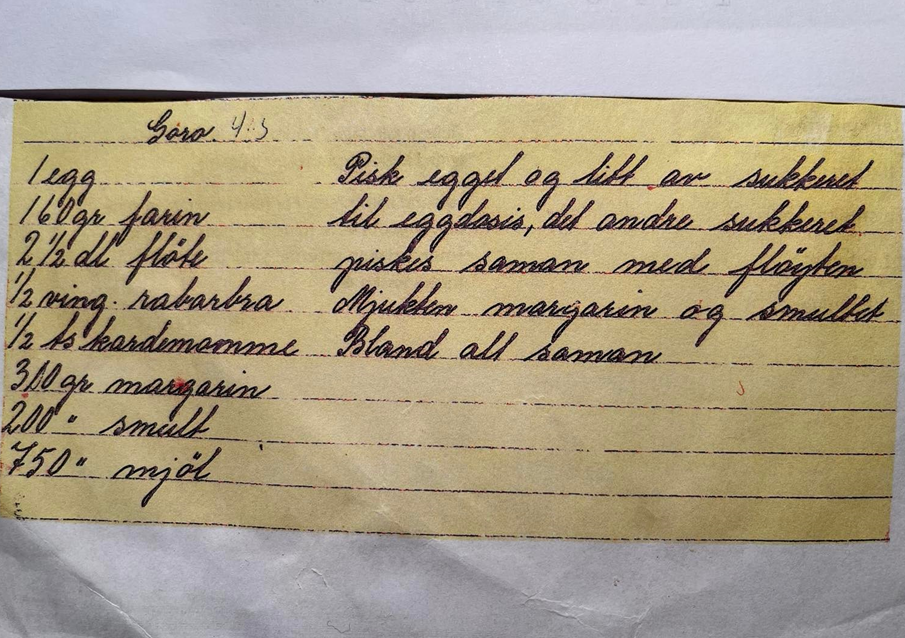 Goro. 4:3
1 egg
160 gr farin
2 1/2 dl flöte
1/2 ving. rabarbra
1/2 ts kardemomme
300 gr margarin
200 " smult
750 " mjöl
Pisk egget og litt av sukkeret
til eggdosis, det andre sukkeret
piskes saman med fløyten
Mjukten margarin og smultet
Bland alt saman